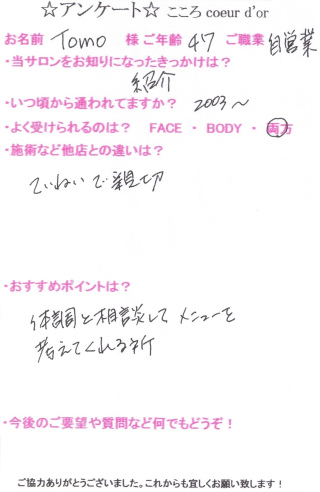 ☆アンケート☆ こころ coeur d'or
お名前 Tomo 様 ご年齢 47 ご職業 自営業
・当サロンをお知りになったきっかけは？
紹介
・いつ頃から通われてますか？ 2003～
・よく受けられるのは？ FACE ・ BODY ・ 両方
・施術など他店との違いは？
ていねいで親切
・おすすめポイントは？
体調と相談して メニューを
考えてくれる所
・今後のご要望や質問など何でもどうぞ！
ご協力ありがとうございました。これからも宜しくお願い致します！